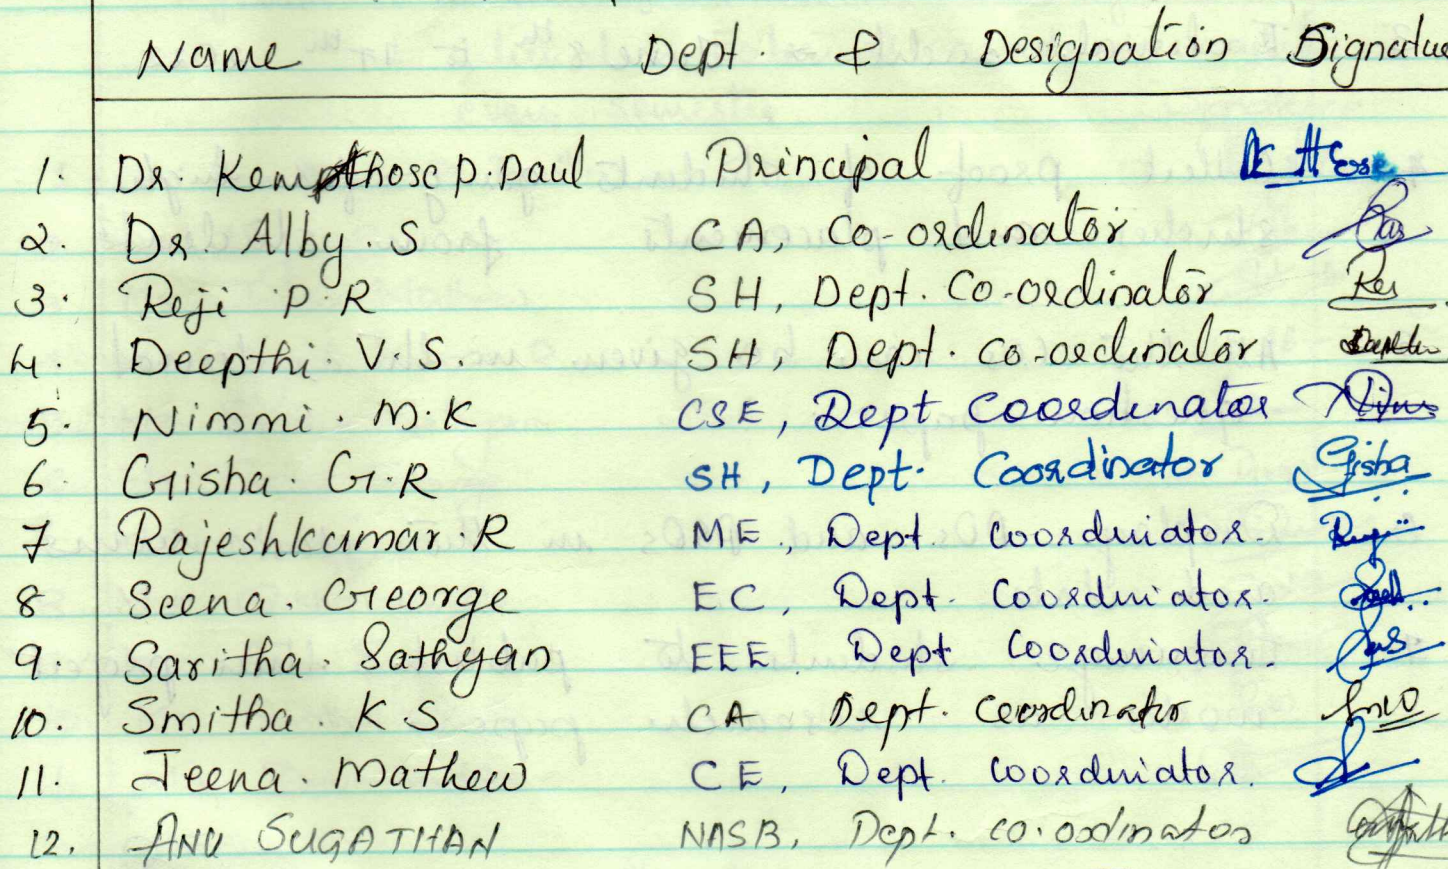 Name Dept. & Designation Signatue
1. Dr. Kempthose P. Paul Principal
2. Dr. Alby. S CA, Co-ordinator
3. Reji P. R SH, Dept. Co-ordinator
4. Deepthi. V. S. SH, Dept. co-ordinator
5. Nimmi. M. K CSE, Dept Coordinator
6. Gisha. G. R SH, Dept. Coordinator Gisha
7 Rajeshkumar. R ME, Dept. Coordinator.
8 Seena. George EC, Dept. Coordinator.
9. Saritha. Sathyan EEE Dept Coordinator.
10. Smitha. K S CA Dept. Coordinator
11. Jeena. Mathew CE, Dept. Coordinator.
12. ANU SUGATHAN NASB, Dept. co.ordinator